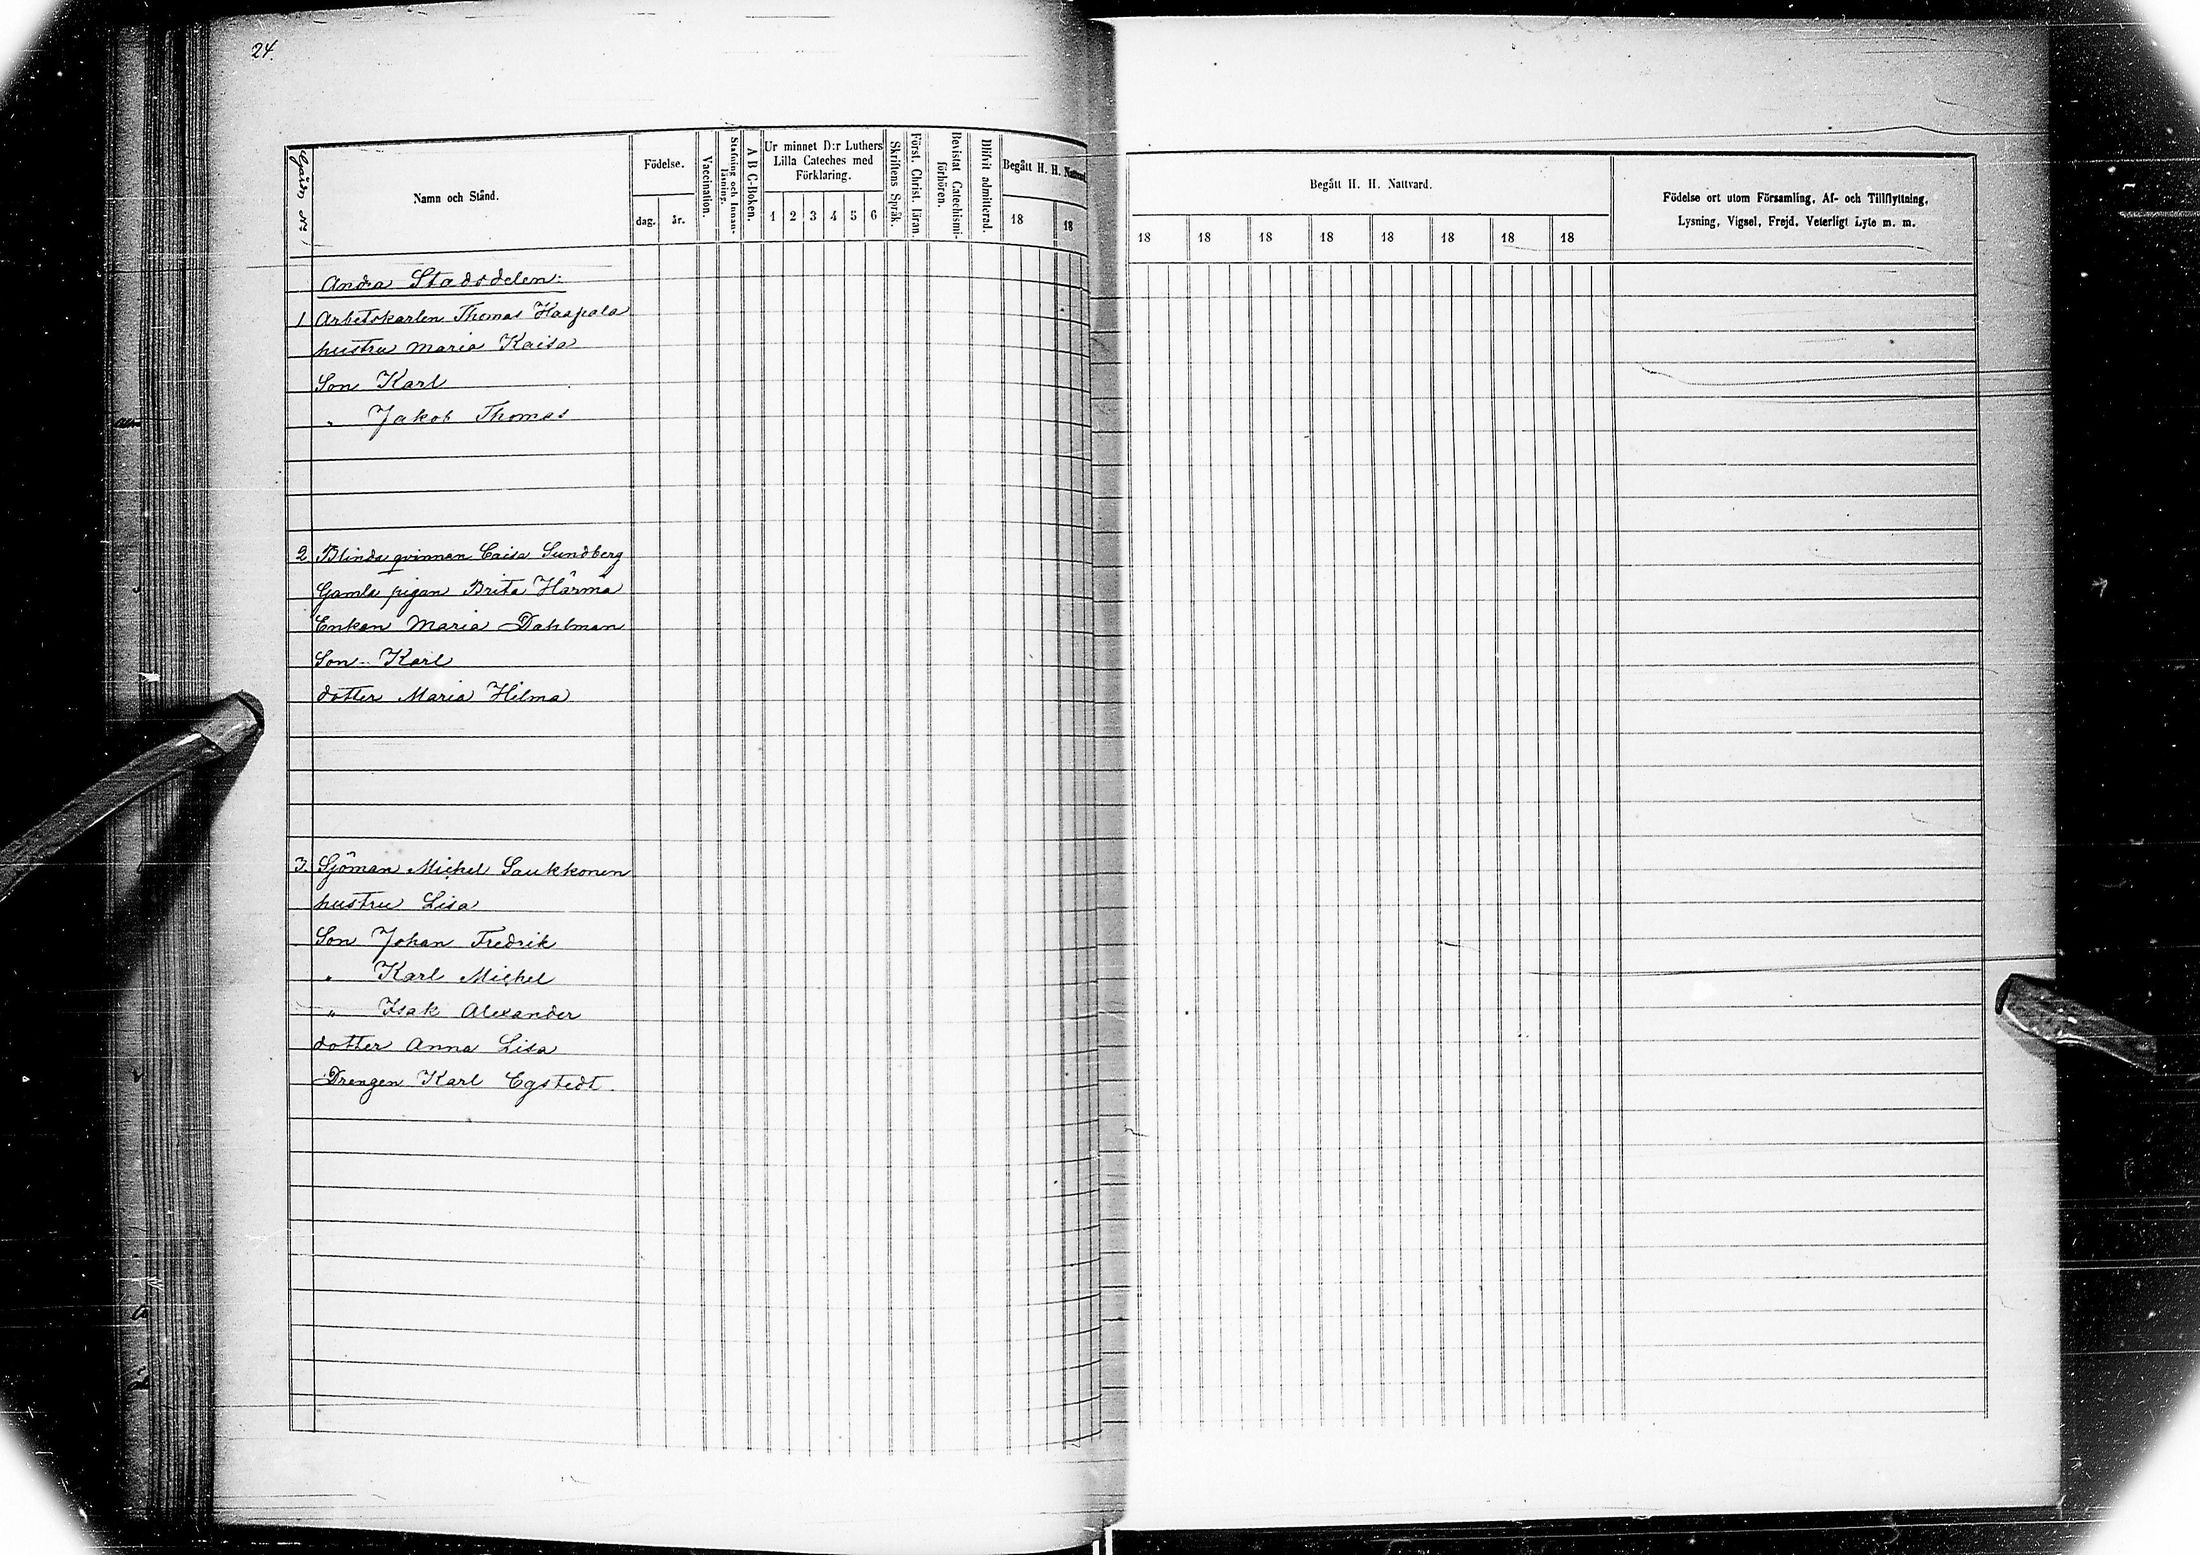 24.
Gårds No
Namn och Stånd.
Födelse.
dag.
år.
Vaccination.
Stafning och Innan-
läsning.
A B C-Boken.
Ur minnet D:r Luthers
Lilla Cateches med
Förklaring.
1 2 3 4 5 6
Skriftens Språk.
Först. Christ. läran.
Bevistat Catechismi-
förhören.
Blifvit admitterad.
Begått H. H. Nattvard.
18 18
Begått H. H. Nattvard.
18 18 18 18 18 18 18 18
Födelse ort utom Församling, Af- och Tillflyttning,
Lysning, Vigsel, Frejd, Veterligt Lyte m. m.
Andra Stadsdelen:
1 Arbetskarlen Thomas Haapala
hustru Maria Kaisa
Son Karl
" Jakob Thomas
2 Blinda qvinnan Caisa Sundberg
Gamla pigan Brita Härmä
Enkan Maria Dahlman
Son Karl
dotter Maria Hilma
3. Sjöman Michel Saukkonen
hustru Lisa
Son Johan Fredrik
" Karl Michel
" Isak Alexander
dotter Anna Lisa
Drengen Karl Egstedt.